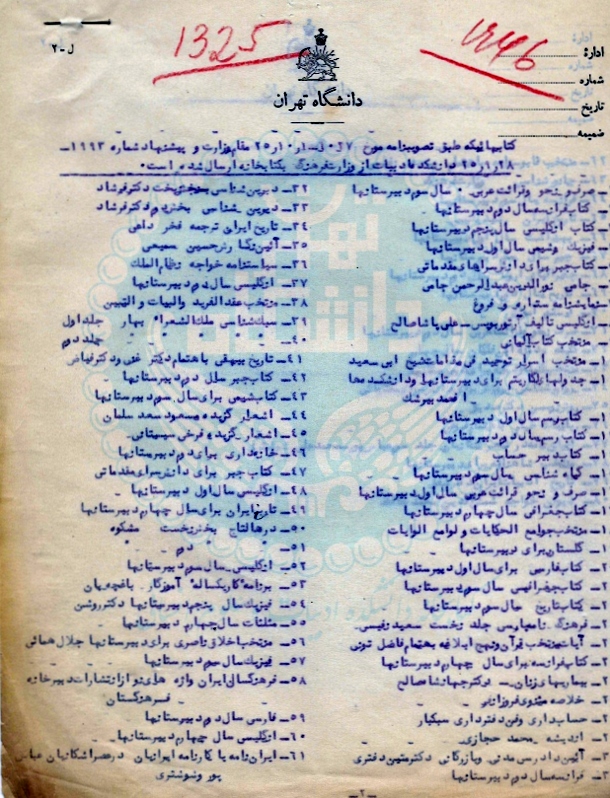 ل-۲
1325
۱۹۴۶
اداره
شماره
تاریخ
ضمیمه
دانشگاه تهران
کتابهائیکه طبق تصویبنامه مورخ مقام وزارت و پیشنهاد شماره ۱۹۹۳ـ
دانشکده ادبیات از وزارت فرهنگ بکتابخانه ارسال شده است
صرف و نحو و قرائت عربی سال سوم دبیرستانها
کتاب فرانسه سال دوم دبیرستانها
کتاب انگلیسی سال پنجم دبیرستانها
فیزیک و شیمی سال اول دبیرستانها
کتاب جبر برای دانشسراهای مقدماتی
جامی نورالدین عبدالرحمن جامی
نمایشنامه ستاره و فروغ
انگلیسی تالیف آرتور بویس ـ علی پاشا صالح
منتخب کتاب آلمانی
منتخب اسرار توحید فی مقامات شیخ ابی سعید
جدولهای لگاریتم برای دبیرستانها و دانشکده ها
احمد بیرشک
کتاب رسم سال اول دبیرستانها
کتاب رسم سال دوم دبیرستانها
کتاب دبیر حساب
گیاه شناسی سال سوم دبیرستانها
صرف و نحو قرائت عربی سال اول دبیرستانها
کتاب جغرافی سال چهارم دبیرستانها
منتخب جوامع الحکایات و لوامع الروایات
گلستان برای دبیرستانها
کتاب فارسی برای سال اول دبیرستانها
کتاب جغرافیس سال سوم دبیرستانها
کتاب تاریخ سال سوم دبیرستانها
فرهنگ نامه پارسی جلد نخست سعید نفیسی
آیات منتخب قرآن و نهج البلاغه بهتمام فاضل تونی
کتاب فرانسه برای سال چهارم دبیرستانها
بیماریهای زنان ـ دکتر جهانشاه صالح
خلاصه مثنوی فروزانفر
حسابداری وفن دفترداری سیگار
اندیشه محمد حجازی
آئین دادرسی مدنی وبازرگانی دکتر متین دفتری
فرانسه سال دوم دبیرستانها
۳۲ـ دیرین شناسی بخش نخست دکتر فرشاد
۳۳ـ دیرین شناسی بخش دوم دکتر فرشاد
۳۴ـ تاریخ ایران ترجمه فخر داعی
۳۵ـ آئین نگارش حسین سمیعی
۳۶ـ سیاستنامه خواجه نظام الملک
۳۷ـ انگلیسی سال دوم دبیرستانها
۳۸ـ منتخب عقدالفرید و البیان و التبیین
۳۹ـ سبک شناسی ملک الشعراء بهار جلد اول
۴۰ـ جلد دوم
۴۱ـ تاریخ بیهقی باهتمام دکتر غنی و دکتر فیاض
۴۲ـ کتاب جبر سال دوم دبیرستانها
۴۳ـ کتاب شیمی برای سال سوم دبیرستانها
۴۴ـ اشعار گزیده مسعود سعد سلمان
۴۵ـ اشعار گزیده فرخی سیستانی
۴۶ـ خانه داری برای دوم دبیرستانها
۴۷ـ کتاب جبر برای دانش سرای مقدماتی
۴۸ـ انگلیسی سال اول دبیرستانها
۴۹ـ تاریخ ایران برای سال چهارم دبیرستانها
۵۰ـ دره التاج بخش نخست مشکوه
۵۱ـ " " دوم "
۵۲ـ انگلیسی سال سوم دبیرستانها
۵۳ـ برنامه کار یکساله آموزگار باغچه بان
۵۴ـ فیزیک سال پنجم دبیرستانها دکتر روشن
۵۵ـ مثلثات سال چهارم دبیرستانها
۵۶ـ منتخب اخلاق ناصری برای دبیرستانها جلال همائی
۵۷ـ فیزیک سال سوم دبیرستانها
۵۸ـ فرهنگستان ایران واژه های نو از انتشارات دبیرخانه
فرهنگستان
۵۹ـ فارسی سال دوم دبیرستانها
۶۰ـ انگلیسی سال چهارم دبیرستانها
۶۱ـ ایران نامه یا کارنامه ایرانیان در عصر اشکانیان عباس
پور وشوشتری
ـ۲ـ